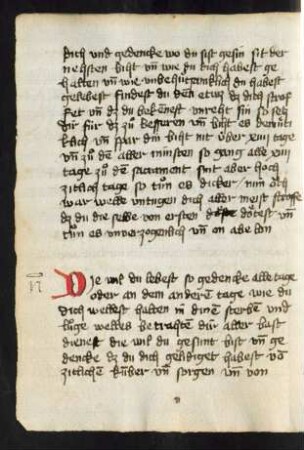 dich und gedencke wo du sist gesin sit der
nehsten biht vn̄ wie du dich habest ge
halten vn̄ wie unbehůtenklich du habest
gelebest findest du den etwz dz dich strof
fet vn̄ dz du bekēnest unreht sin so setz
dir für dz zů bessren vn̄ biht es
lich vn̄ spar din biht nit über xiiii tage
vn̄ zů dē aller minsten so gang alle xiiii
tage zů dem sacrament sint aber hoch
zitlich tage so tůn es dicker nim och
war welle dich aller meist stroffe
dz du die selbe von ersten vn̄
tůn es unverzogenlich vn̄ on abe lon
Die wil du lebest so gedencke alle tage
oder an dem anderē tage wie du
dich wellest halten in dinē sterbē und
lůge welles betrahtē dir aller bast
dienest die wil du gesunt bist vn̄ ge
dencke dz du dich gelidiget habest vō
zitlichē kūber vn̄ sorgen vn̄ von